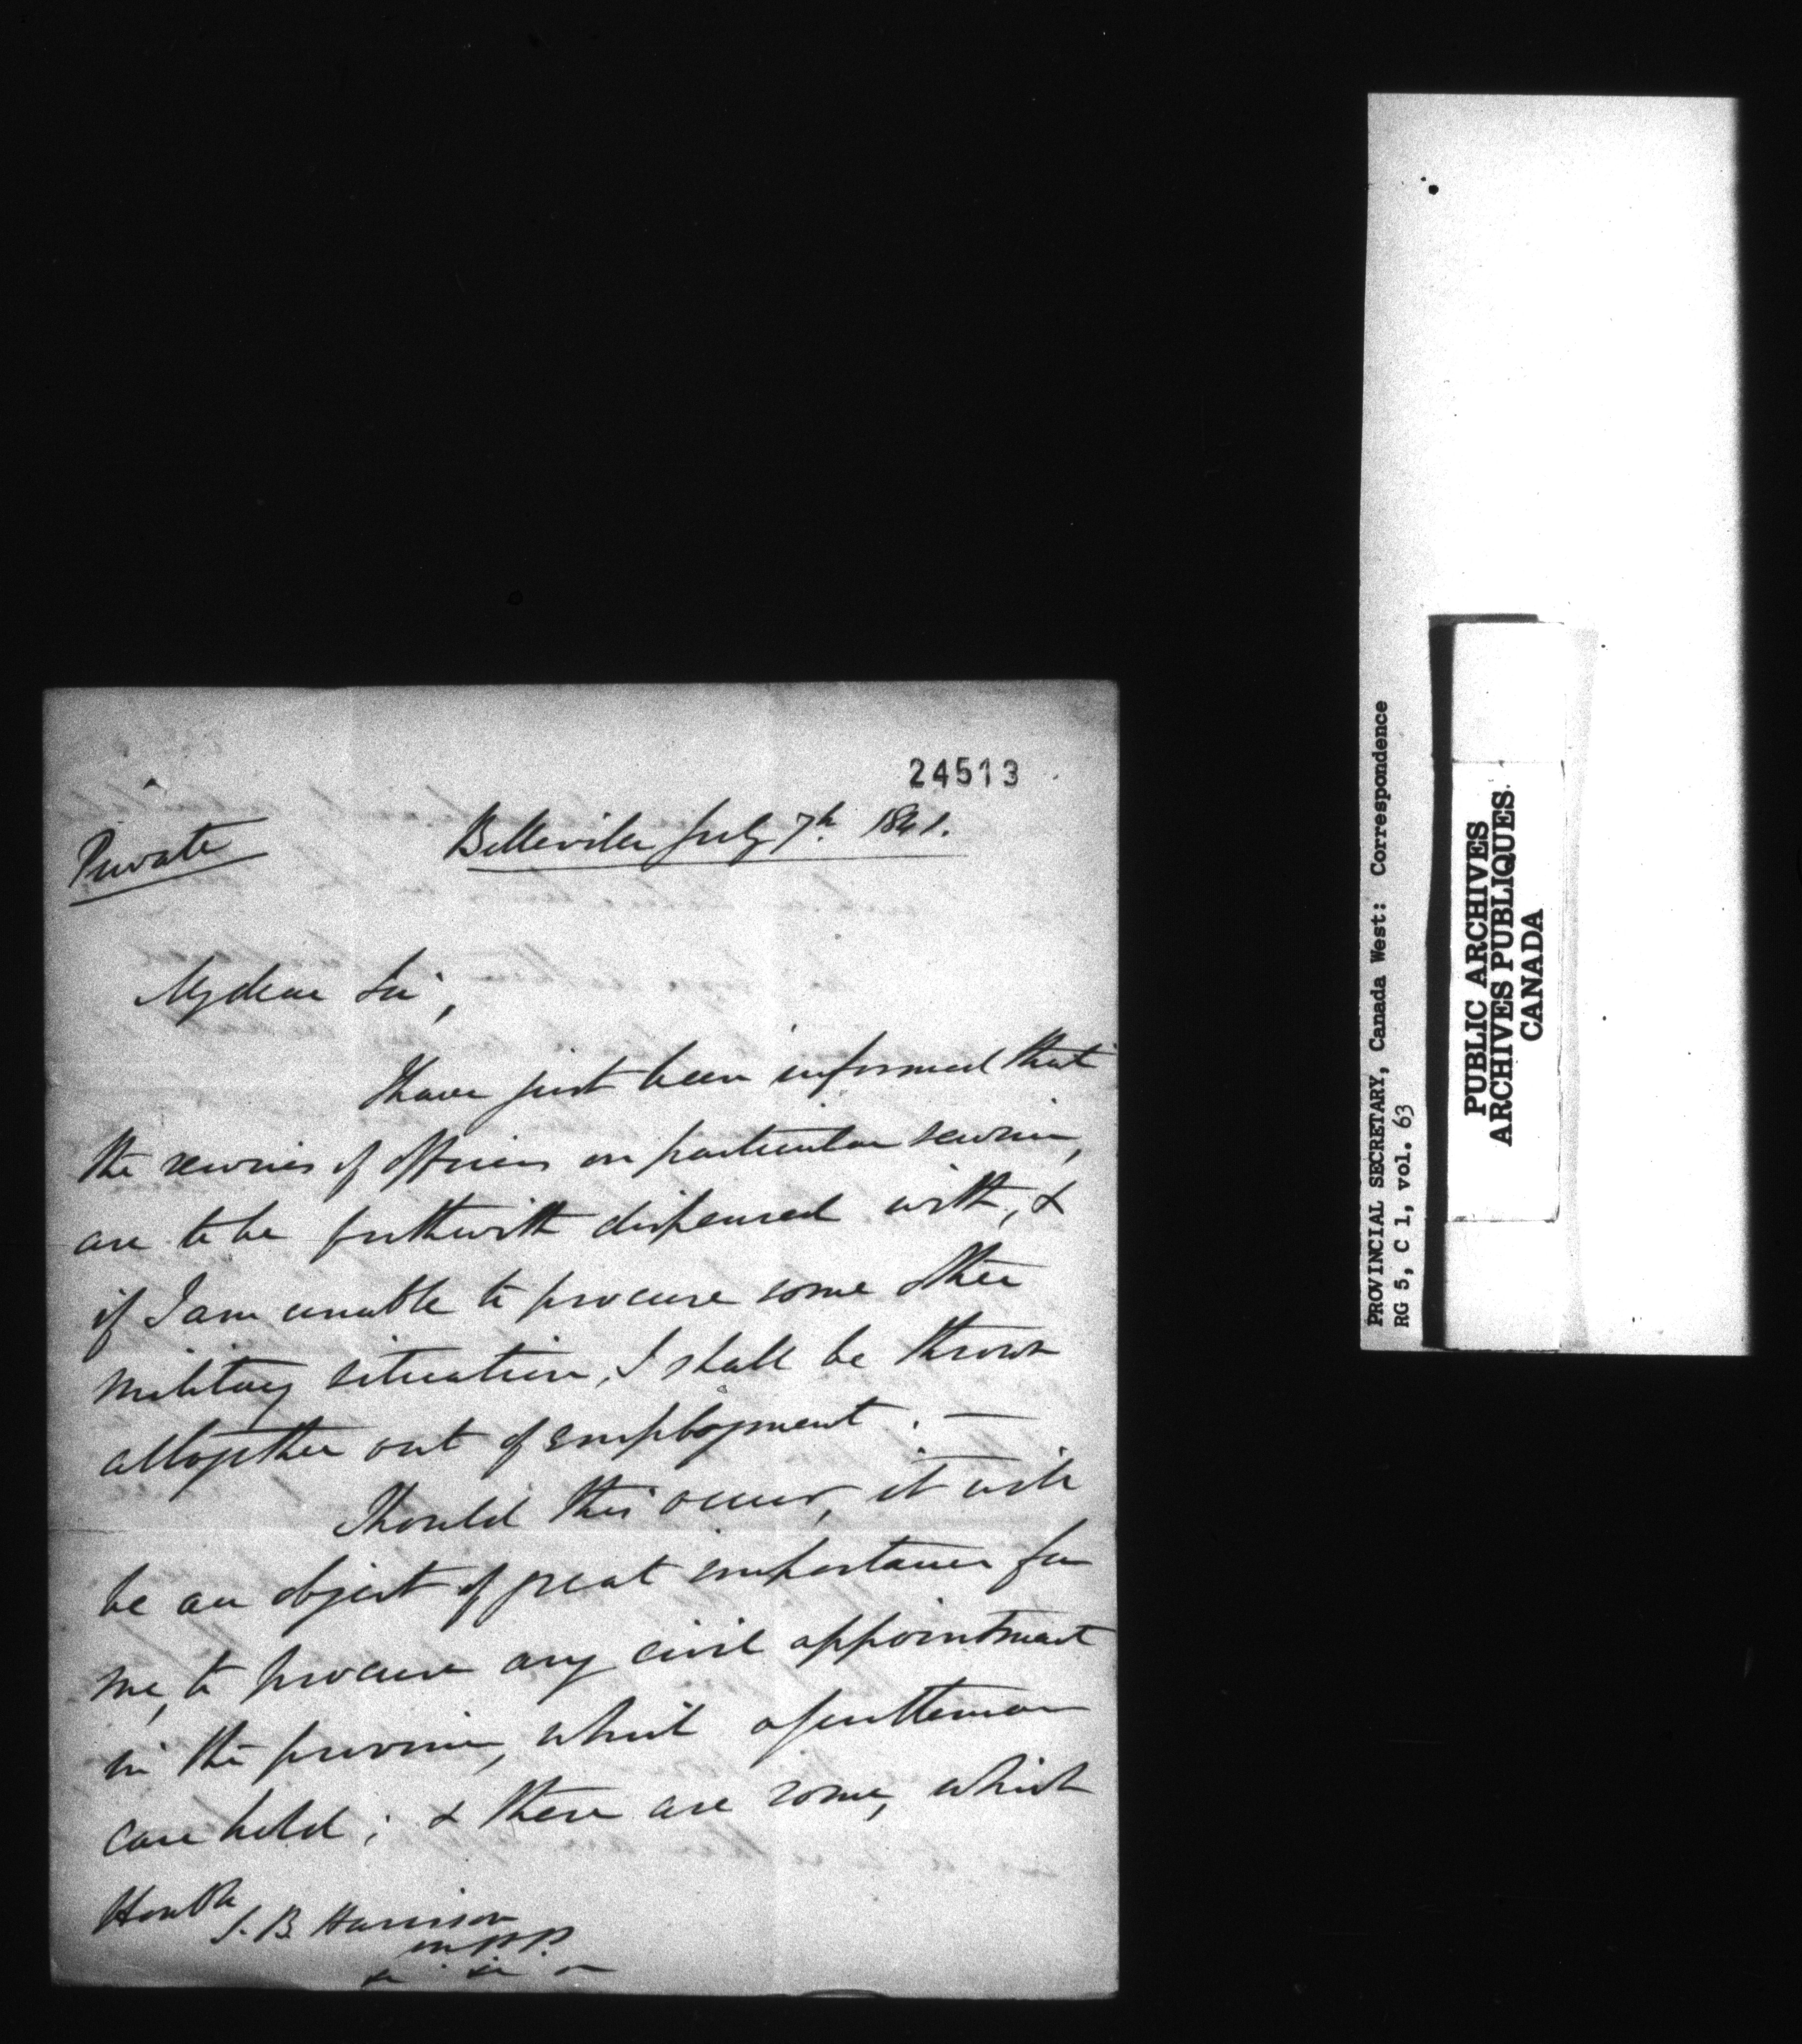 24513
Private
Belleville July 7th. 1841.
My dear Sir,
I have just been informed that
the services of officers on particular service,
are to be forthwith dispensed with, &
if I am unable to procure some other
military situation, I shall be thrown
altogether out of employment. —
Should this occur, it will
be an object of great importance for
me, to procure any civil appointment
in the province, which a gentleman
can hold; & there are some, which
Honble
S. B. Harrison
M.P.P.
&c &c &c
PROVINCIAL SECRETARY, Canada West: Correspondence
RG 5, C 1, vol. 63
PUBLIC ARCHIVES
ARCHIVES PUBLIQUES
CANADA